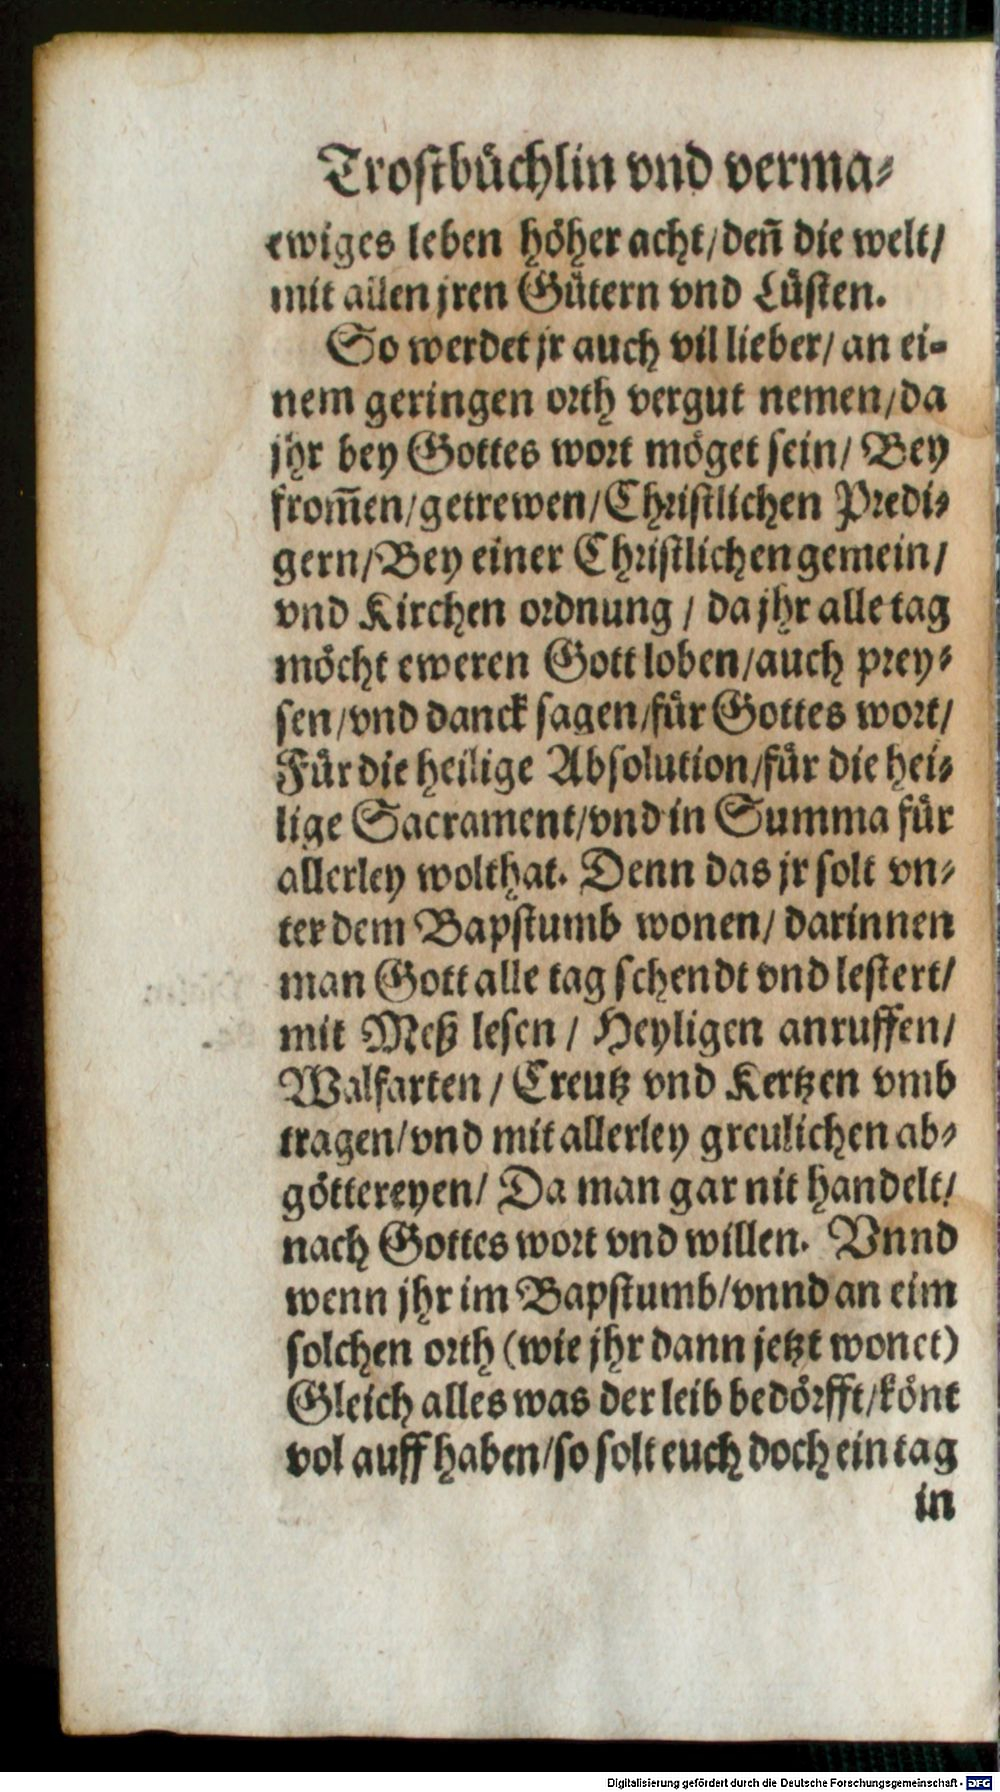 Trostbüchlin vnd verma⸗
ewiges leben höher acht/ deñ die welt/
mit allen jren Gütern vnd Lüsten.
So werdet jr auch vil lieber/ an ei⸗
nem geringen orth vergut nemen/ da
jhr bey Gottes wort möget sein/ Bey
from̃en/ getrewen/ Christlichen Predi⸗
gern/ Bey einer Christlichen gemein/
vnd Kirchen ordnung / da jhr alle tag
möcht eweren Gott loben/ auch prey⸗
sen/ vnd danck sagen/ für Gottes wort/
Für die heilige Absolution/ für die hei⸗
lige Sacrament/ vnd in Summa für
allerley wolthat. Denn das jr solt vn⸗
ter dem Bapstumb wonen/ darinnen
man Gott alle tag schendt vnd lestert/
mit Meß lesen / Heyligen anruffen/
Walfarten / Creutz vnd Kertzen vmb
tragen/ vnd mit allerley greulichen ab⸗
göttereyen/ Da man gar nit handelt/
nach Gottes wort vnd willen. Vnnd
wenn jhr im Bapstumb/ vnnd an eim
solchen orth (wie jhr dann jetzt wonet)
Gleich alles was der leib bedörfft/ könt
vol auff haben/ so solt euch doch ein tag
in
Digitalisierung gefördert durch die Deutsche Forschungsgemeinschaft - DFG